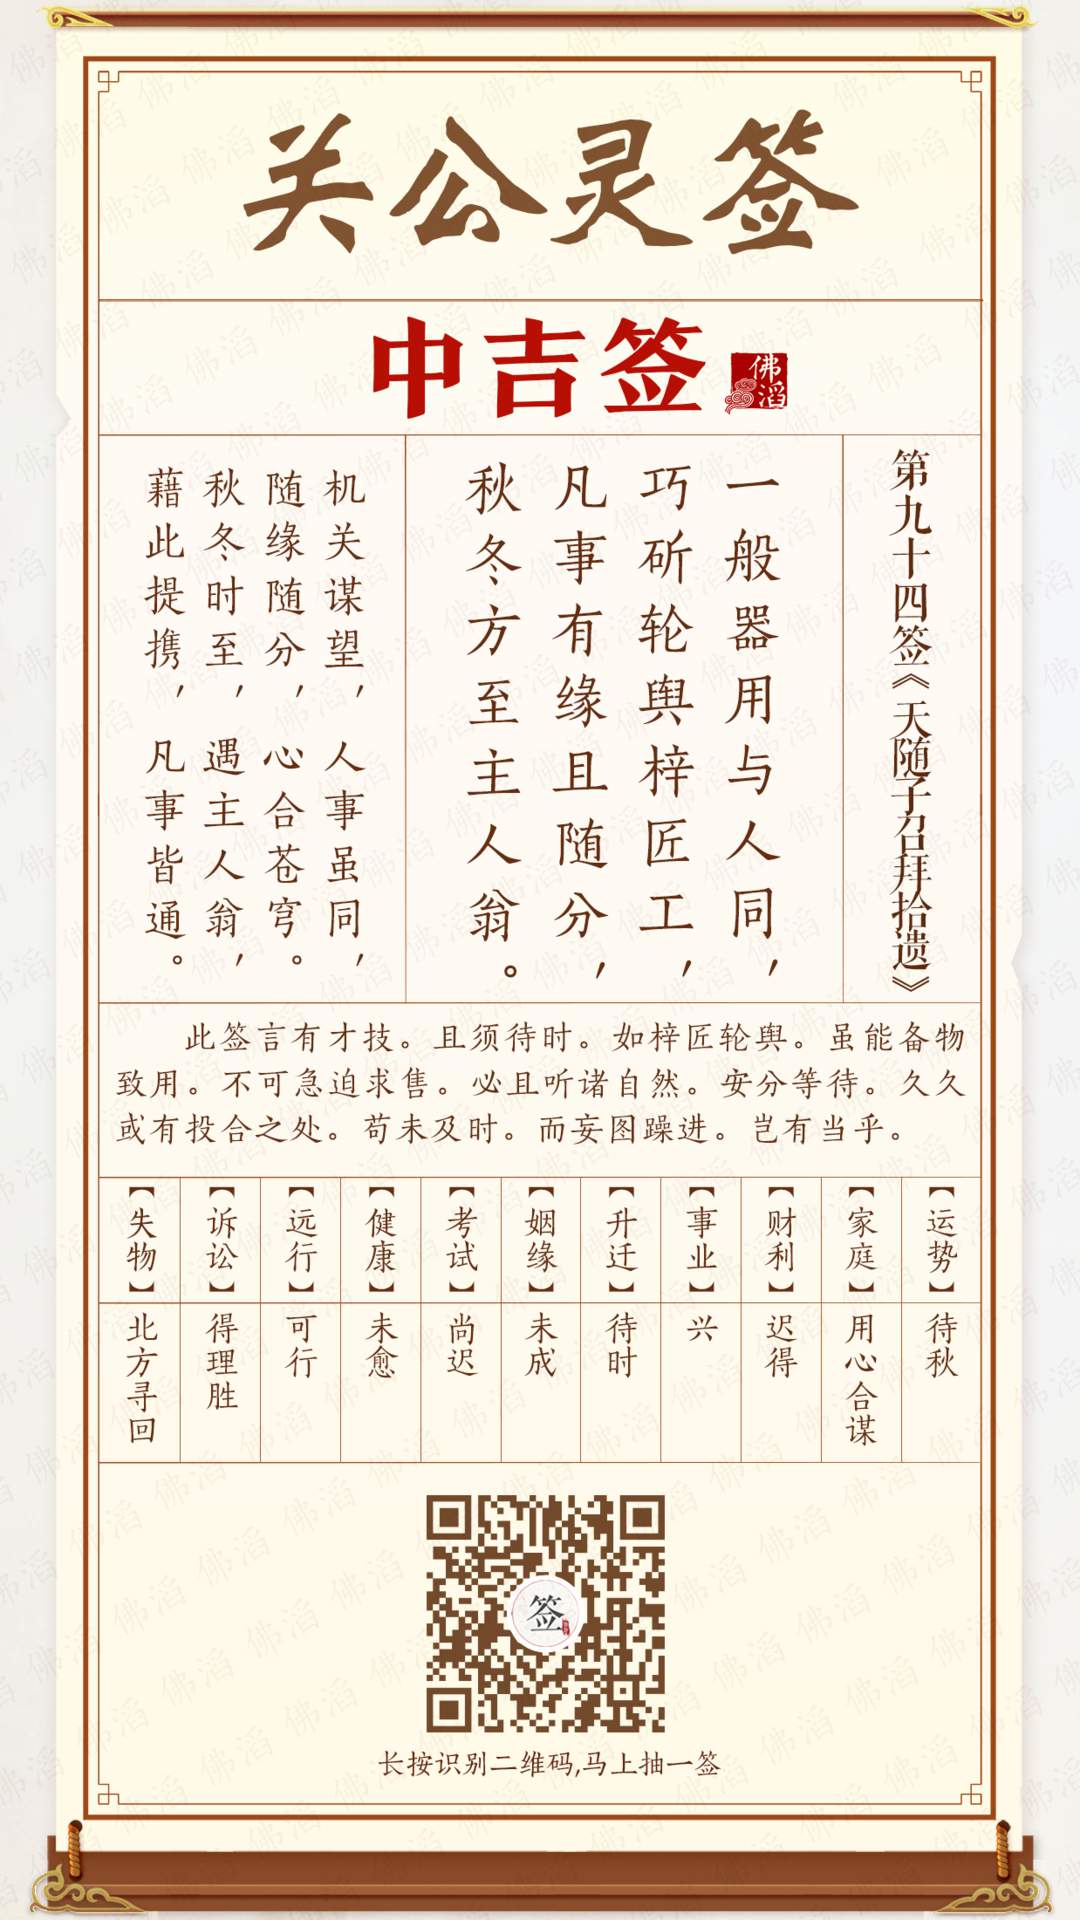 关公灵签
中吉签
佛滔
第九十四签《天随子召拜拾遗》
一般器用与人同，
巧斫轮舆梓匠工，
凡事有缘且随分，
秋冬方至主人翁。
机关谋望，人事虽同，
随缘随分，心合苍穹。
秋冬时至，遇主人翁，
藉此提携，凡事皆通。
此签言有才技。且须待时。如梓匠轮舆。虽能备物
致用。不可急迫求售。必且听诸自然。安分等待。久久
或有投合之处。苟未及时。而妄图躁进。岂有当乎。
【运势】
待秋
【家庭】
用心合谋
【财利】
迟得
【事业】
兴
【升迁】
待时
【姻缘】
未成
【考试】
尚迟
【健康】
未愈
【远行】
可行
【诉讼】
得理胜
【失物】
北方寻回
签
长按识别二维码,马上抽一签